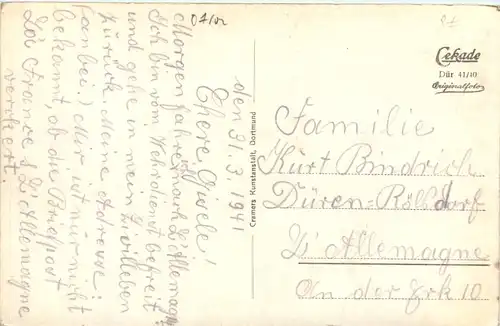 04/02
den 31.3.1941
Chere Gisele!
Morgen fahre ich nach L'Allemagne
Ich bin vom Wehrdienst befreit
und gehe in mein Zivilleben
zurück. Meine Adresse:
(anbei.) Mir ist nur nicht
bekannt, ob die Briefpost
La France & L'Allemagne
verkert.
Cramers Kunstanstalt, Dortmund
Cekade
Dür 41/10
Originalfoto
Familie
Kurt Bindrich
Düren-Rölsdorf
L'Allemagne
An der Erk 10